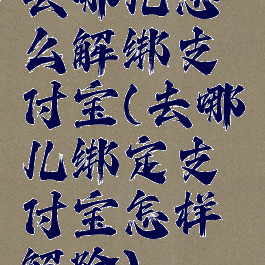 去哪儿怎
么解绑支
付宝(去哪
儿绑定支
付宝怎样
解除)